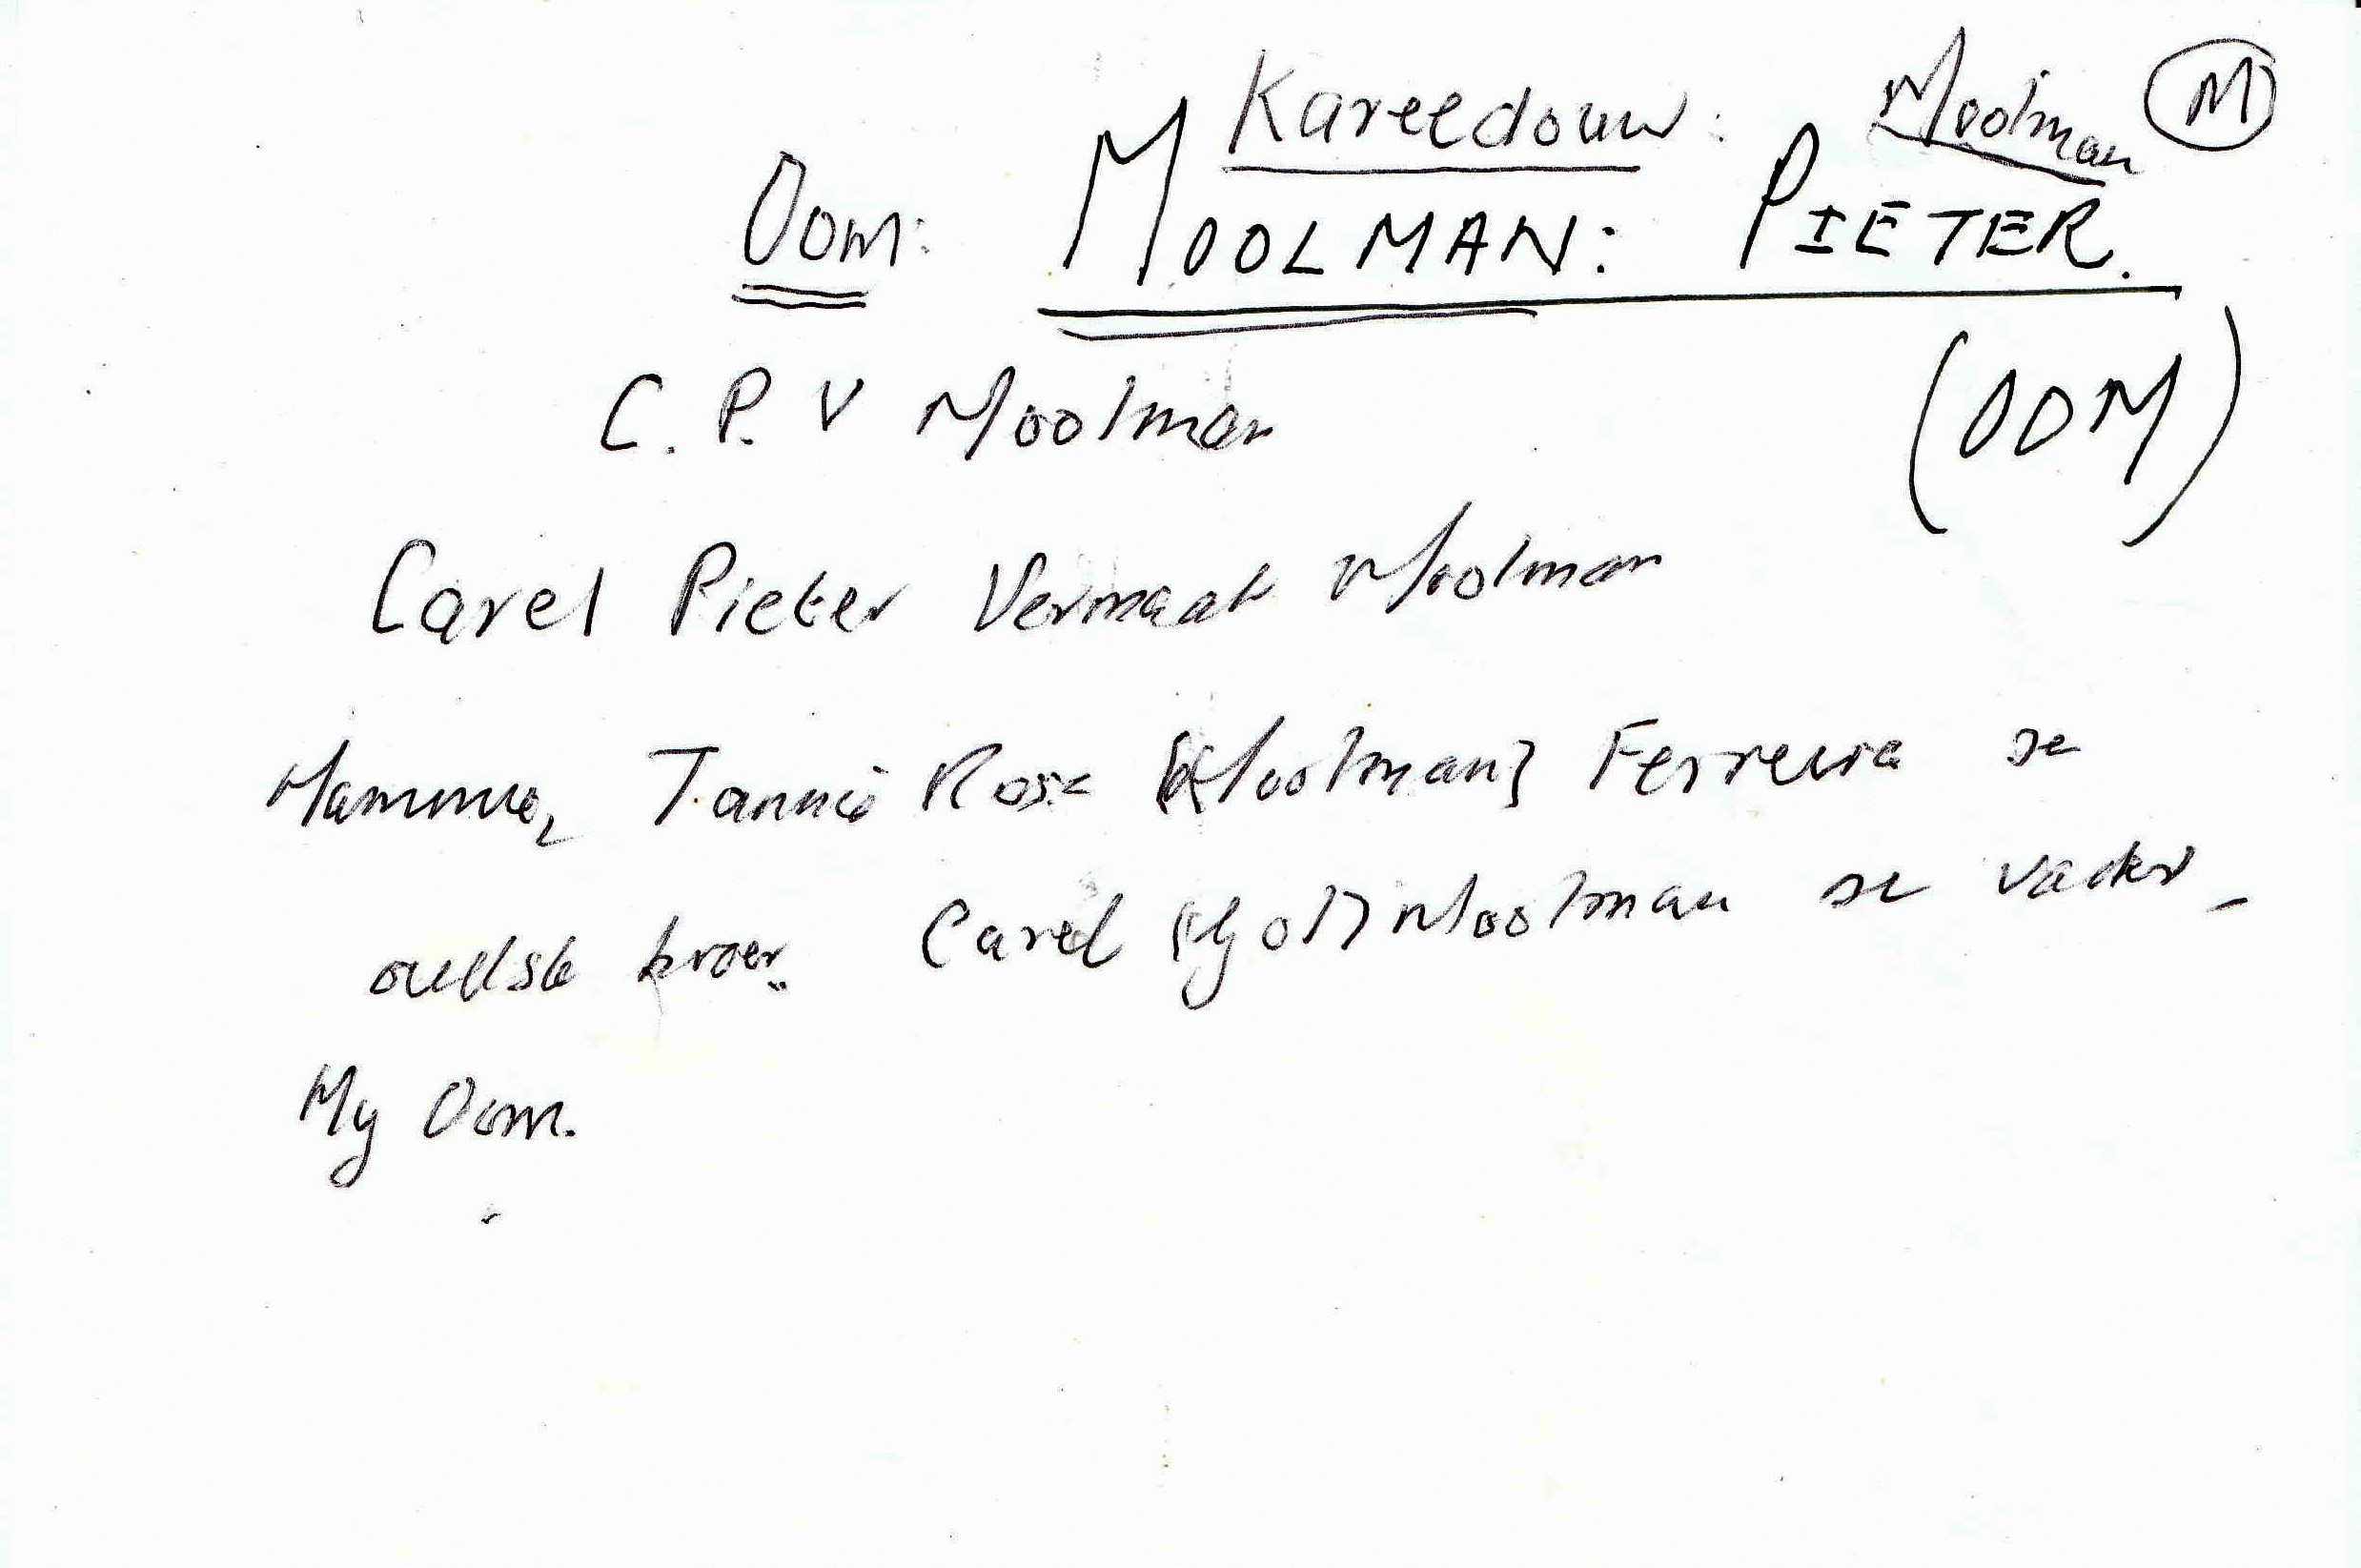 Kareedouw: Moolman M
Oom: MOOLMAN: PIETER.
(OOM)
C. P. V Moolman
Carel Pieter Vermaak Moolman
Mammie, Tannie Rose (Moolman) Ferreira se
oudste broer. Carel Moolman se vader -
My Oom.